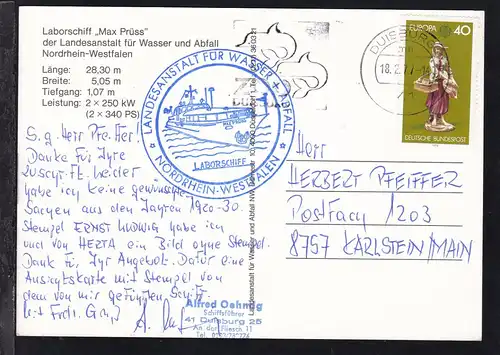 Laborschiff „Max Prüss"
der Landesanstalt für Wasser und Abfall
Nordrhein-Westfalen
Länge: 28,30 m
Breite: 5,05 m
Tiefgang: 1,07 m
Leistung: 2 × 250 kW
(2 × 340 PS)
S. g. Herr Pfeiffer!
Danke für Ihre
Zuschrift. Leider
habe ich keine gewünschten
Sachen aus den Jahren 1920-30.
Stempel ERNST LUDWIG habe ich
und von HERTA ein Bild ohne Stempel.
Dank für Ihr Angebot. Dafür eine
Ansichtskarte mit Stempel von
dem von mir geführten Schiff
Mit Frdl. Gruß
LANDESANSTALT FÜR WASSER + ABFALL
LABORSCHIFF
NORDRHEIN-WESTFALEN
Alfred Oehmig
Schiffsführer
41 Duisburg 25
An der Fliesch 11
Landesanstalt für Wasser und Abfall
DUISBURG
18.2.77
EUROPA 40
DEUTSCHE BUNDESPOST
Herr
HERBERT PFEIFFER
POSTFACH 1203
8757 KARLSTEIN/MAIN